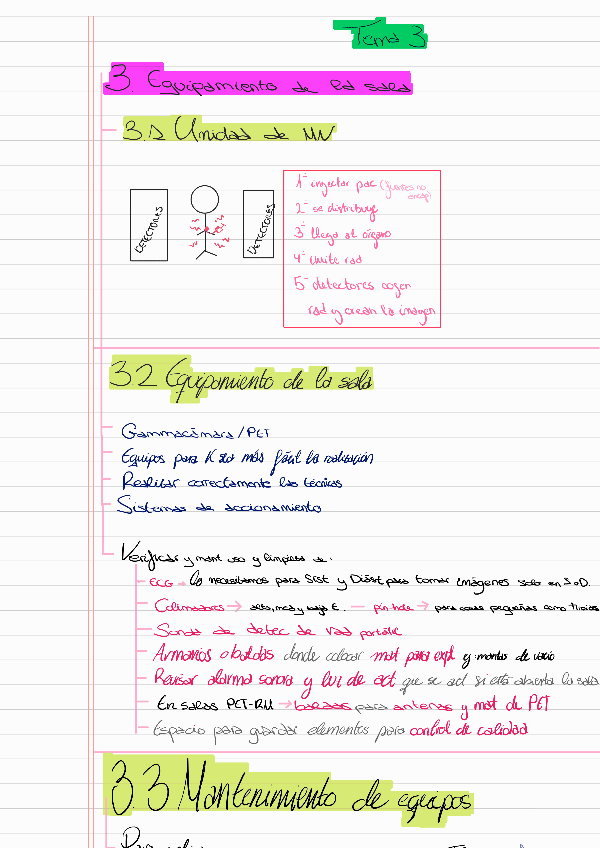 Tema 3
3. Equipamiento de la sala
3.1 Unidad de MN
DETECTORES
DETECTORES
1º inyectar pac (fuentes no encap)
2º se distribuye
3º llega al órgano
4º emite rad
5º detectores cogen
rad y crean la imagen
3.2 Equipamiento de la sala
Gammacámara / PET
Equipos para K sea más fácil la realización
Realizar correctamente las técnicas
Sistemas de accionamiento
Verificar y mant uso y limpieza de:
ECG → lo necesitamos para Sist y Diást para tomar imágenes solo en S o D.
Colimadores → alta, med y baja E. — pin-hole → para cosas pequeñas como tiroides
Sonda de detec de rad portátil
Armarios o baldas donde colocar mat para expl y mantas de vacio
Revisar alarma sonora y luz de act que se act si está abierta la sala
En salas PET-RM → baldas para antenas y mat de PET
Espacio para guardar elementos para control de calidad
3.3 Mantenimiento de equipos